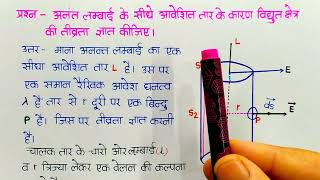 प्रश्न - अनंत लम्बाई के सीधे आवेशित तार के कारण विद्युत क्षेत्र
की तीव्रता ज्ञात कीजिए।
उत्तर- माना अनन्त लम्बाई का एक
सीधा आवेशित तार L है। उस पर
एक समान रैखिक आवेश घनत्व
λ है तार से r दूरी पर एक बिन्दु
P है। जिस पर तीव्रता ज्ञात करनी
है।
चालक तार के चारो ओर लम्बाई (l)
व r त्रिज्या लेकर एक बेलन की कल्पना
L
E
S2
r
P
ds
E